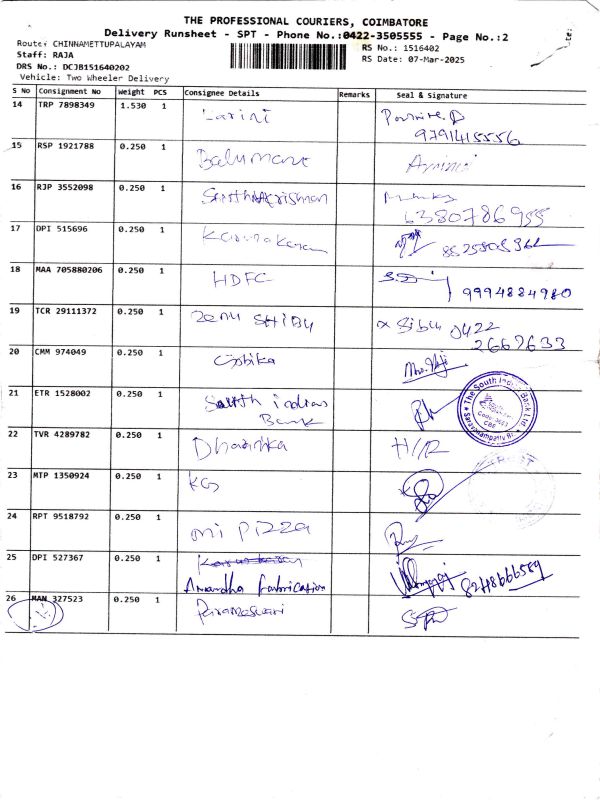 THE PROFESSIONAL COURIERS, COIMBATORE
Delivery Runsheet - SPT - Phone No.:0422-3505555 - Page No.:2
Route: CHINNAMETTUPALAYAM
RS No.: 1516402
Staff: RAJA
RS Date: 07-Mar-2025
DRS No.: DCJB151640202
Vehicle: Two Wheeler Delivery
S No Consignment No Weight PCS Consignee Details Remarks Seal & Signature
14 TRP 7898349 1.530 1
9791415556
15 RSP 1921788 0.250 1
16 RJP 3552098 0.250 1
6380786955
17 DPI 515696 0.250 1 Karunakaran
18 MAA 705880206 0.250 1 HDFC
9994884980
19 TCR 29111372 0.250 1 Zenu SHIBU x Sibu 0422
2667633
20 CMM 974049 0.250 1
21 ETR 1528002 0.250 1 South indian
Bank
The South Indian Bank Ltd
22 TVR 4289782 0.250 1 H/R
23 MTP 1350924 0.250 1 KGS
24 RPT 9518792 0.250 1 mi pizza
25 DPI 527367 0.250 1
Anandha Fabrication 8248666589
26 MAN 327523 0.250 1 Parameswari